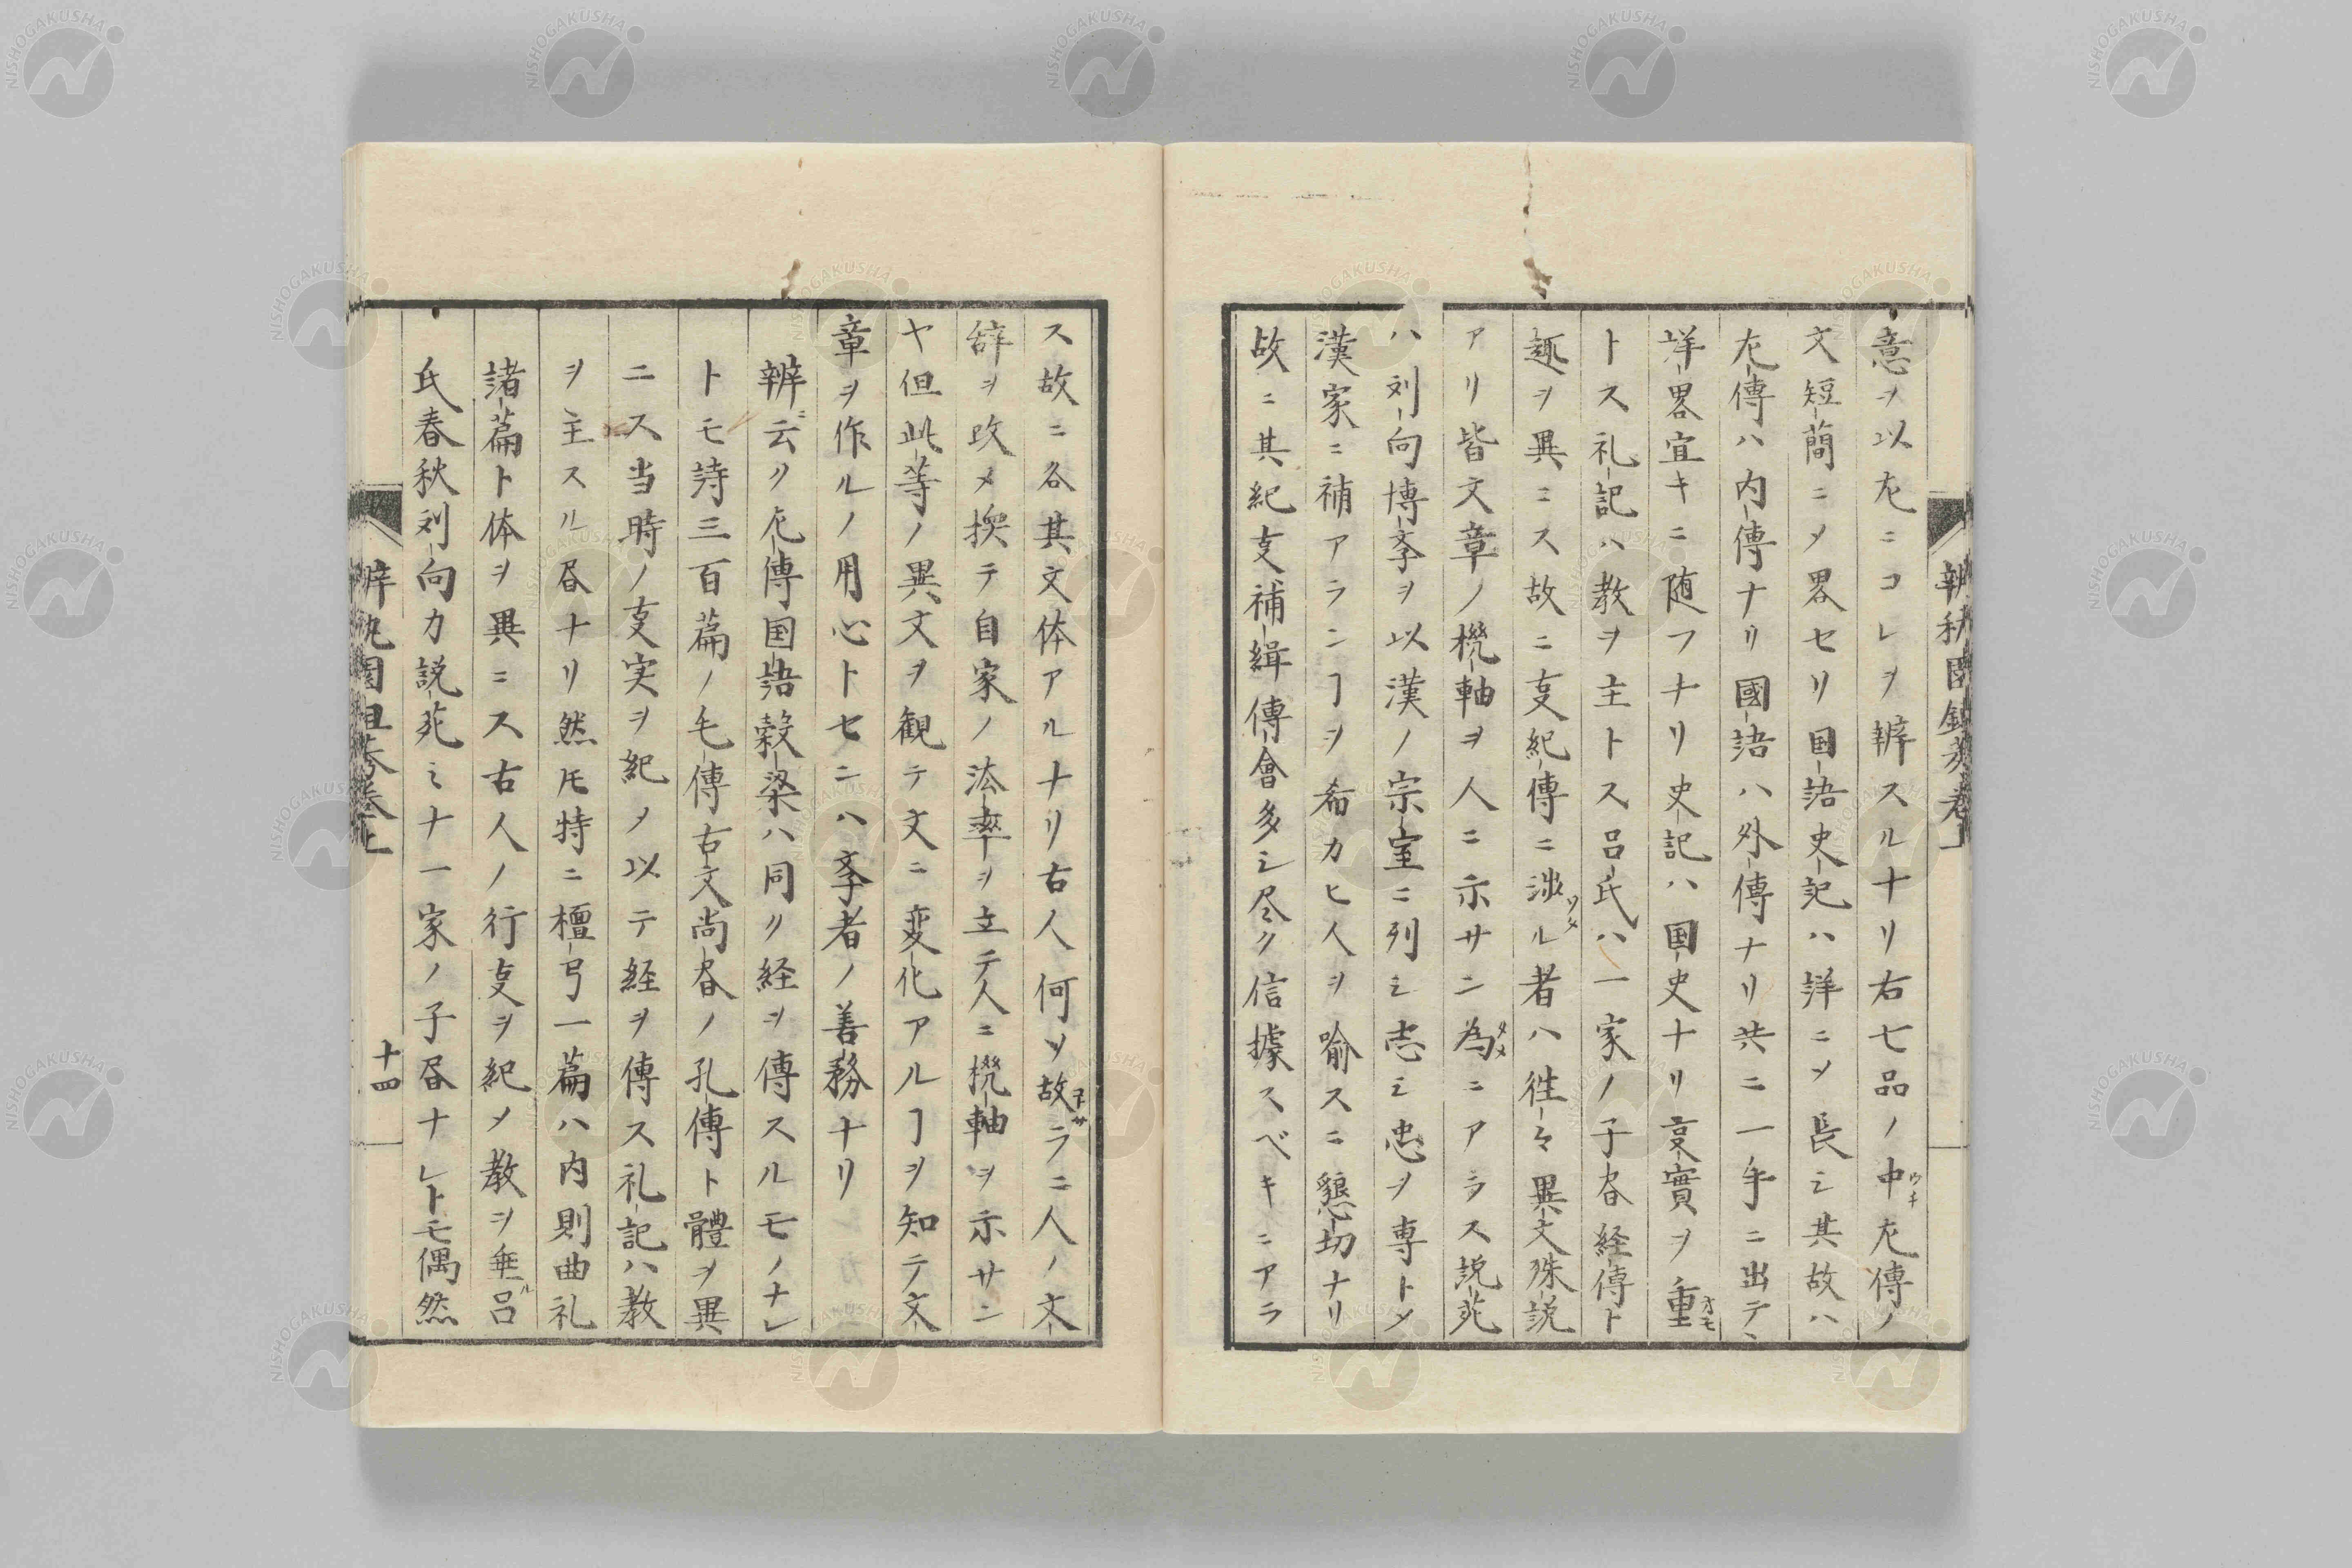 意ヲ以左ニコレヲ辨スルナリ右七品ノ中左傳ノ
文短簡ニメ畧セリ国語史記ハ詳ニメ長シ其故ハ
左傳ハ内傳ナリ國語ハ外傳ナリ共ニ一手ニ出テヽ
詳畧宜キニ随フナリ史記ハ国史ナリ支實ヲ重
トス礼記ハ教ヲ主トス呂氏ハ一家ノ子昏経傳ト
趣ヲ異ニス故ニ支紀傳ニ渉ル者ハ徃々異文殊説
アリ皆文章ノ機軸ヲ人ニ示サン為ニアラス説苑
ハ刘向博斈ヲ以漢ノ宗室ニ列シ志シ忠ヲ専トメ
漢家ニ補アランヿヲ希カヒ人ヲ喩スニ懇切ナリ
故ニ其紀支補緝傳會多シ尽ク信據スベキニアラ
ス故ニ各其文体アルナリ古人何ソ故ラニ人ノ文
辞ヲ改メ換テ自家ノ法率ヲ立テ人ニ機軸ヲ示サン
ヤ但此等ノ異文ヲ観テ文ニ変化アルヿヲ知テ文
章ヲ作ルノ用心トセンハ斈者ノ善務ナリ
辨ニ云ク左傳国語穀梁ハ同ク経ヲ傳スルモノナレ
トモ詩三百篇ノ毛傳古文尚昏ノ孔傳ト體ヲ異
ニス当時ノ支実ヲ紀メ以テ経ヲ傳ス礼記ハ教
ヲ主スル昏ナリ然𪜈特ニ檀弓一篇ハ内則曲礼
諸篇ト体ヲ異ニス古人ノ行支ヲ紀メ教ヲ垂ル呂
氏春秋刘向カ説苑ミナ一家ノ子昏ナレトモ偶然
十四